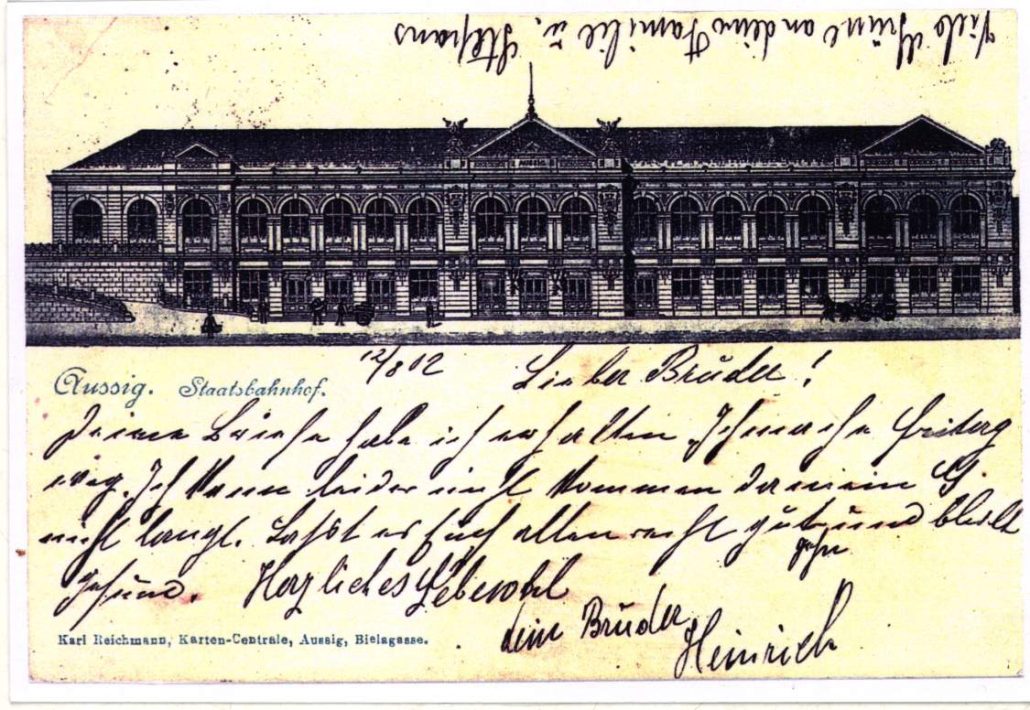 Viele Grüße an deine Familie u. Stefans
12/8 02 Lieber Bruder!
Aussig. Staatsbahnhof.
Deine Briefe habe ich erhalten, Ich mache Freitag
weg. Ich kann leider nicht kommen da mein G.
nicht langt. Laßt es Euch allen recht gut gehn und bleibt
gesund. Herzliches Lebewohl
dein Bruder
Heinrich
Karl Reichmann, Karten-Centrale, Aussig, Bielagasse.